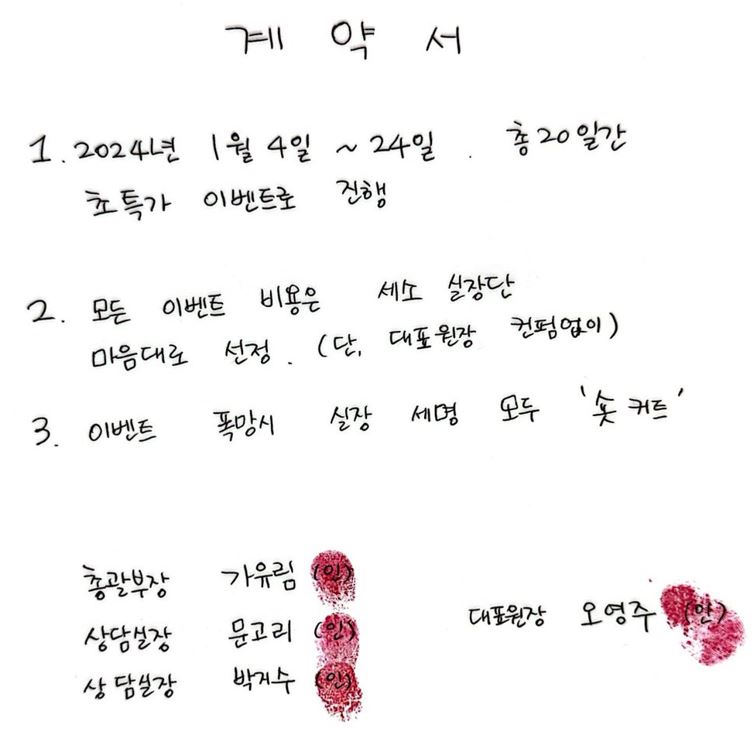 계 약 서
1. 2024년 1월 4일 ~ 24일. 총 20일간
초특가 이벤트로 진행
2. 모든 이벤트 비용은 세소 실장단
마음대로 선정. (단, 대표원장 컨펌없이)
3. 이벤트 폭망시 실장 세명 모두 '숏커트'
총괄부장 가유림 (인)
상담실장 문고리 (인)
상담실장 박지수 (인)
대표원장 오영주 (인)